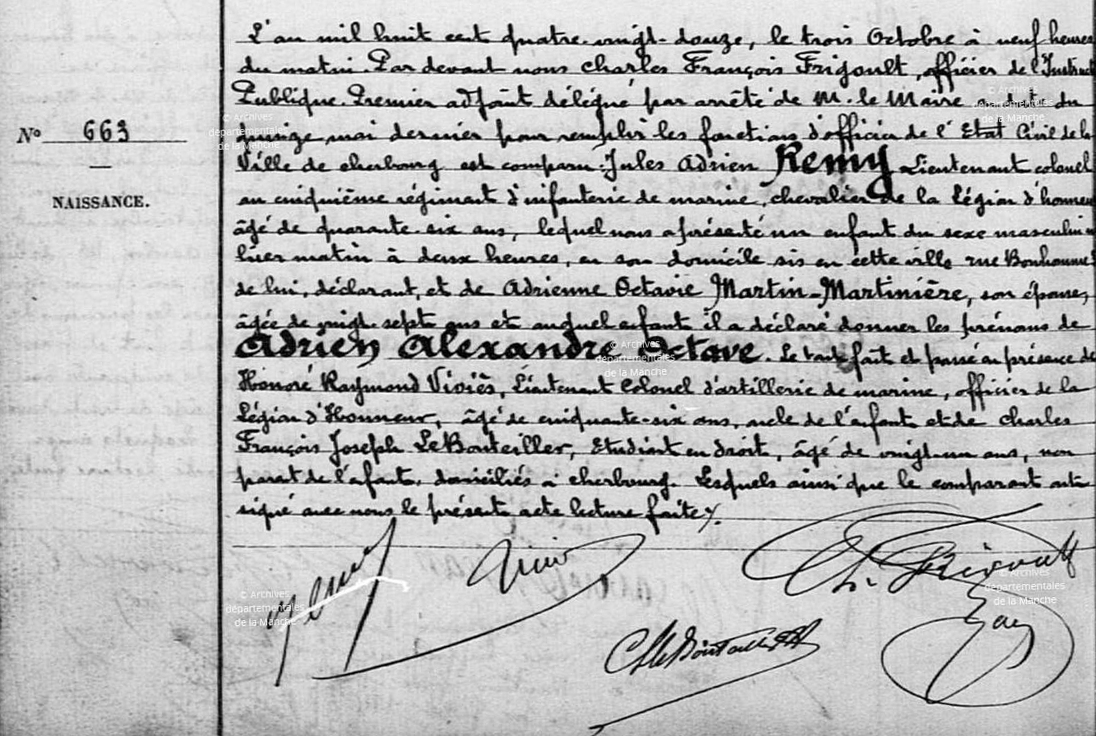 L'an mil huit cent quatre-vingt-douze, le trois Octobre à neuf heures
du matin. Par devant nous Charles François Frigoult, officier de l'Instruct
Publique. Premier adjoint délégué par arrêté de M. le Maire du
Nº 663 mai dernier pour remplir les fonctions d'officier de l'Etat Civil de la
Ville de Cherbourg est comparu: Jules Adrien Remy Lieutenant colonel
NAISSANCE. au cinquième régiment d'infanterie de marine, chevalier de la Légion d'honneur
âgé de quarante-six ans, lequel nous a présenté un enfant du sexe masculin
hier matin à deux heures, en son domicile sis en cette ville rue Bonhomme
de lui, déclarant, et de Adrienne Octavie Martin-Martinière, son épouse,
âgée de vingt-sept ans et auquel enfant il a déclaré donner les prénoms de
Adrien Alexandre Octave. Le tout fait et passé en présence de
Honoré Raymond Viviès, Lieutenant Colonel d'artillerie de marine, officier de la
Légion d'Honneur, âgé de cinquante-six ans, oncle de l'enfant et de Charles
François Joseph LeBouteiller, Etudiant en droit, âgé de vingt-un ans, non
parent de l'enfant, domiciliés à Cherbourg. Lesquels ainsi que le comparant ont
signé avec nous le présent acte lecture faite.
© Archives
départementales
de la Manche
© Archives
départementales
de la Manche
© Archives
départementales
de la Manche
© Archives
départementales
de la Manche
© Archives
départementales
de la Manche